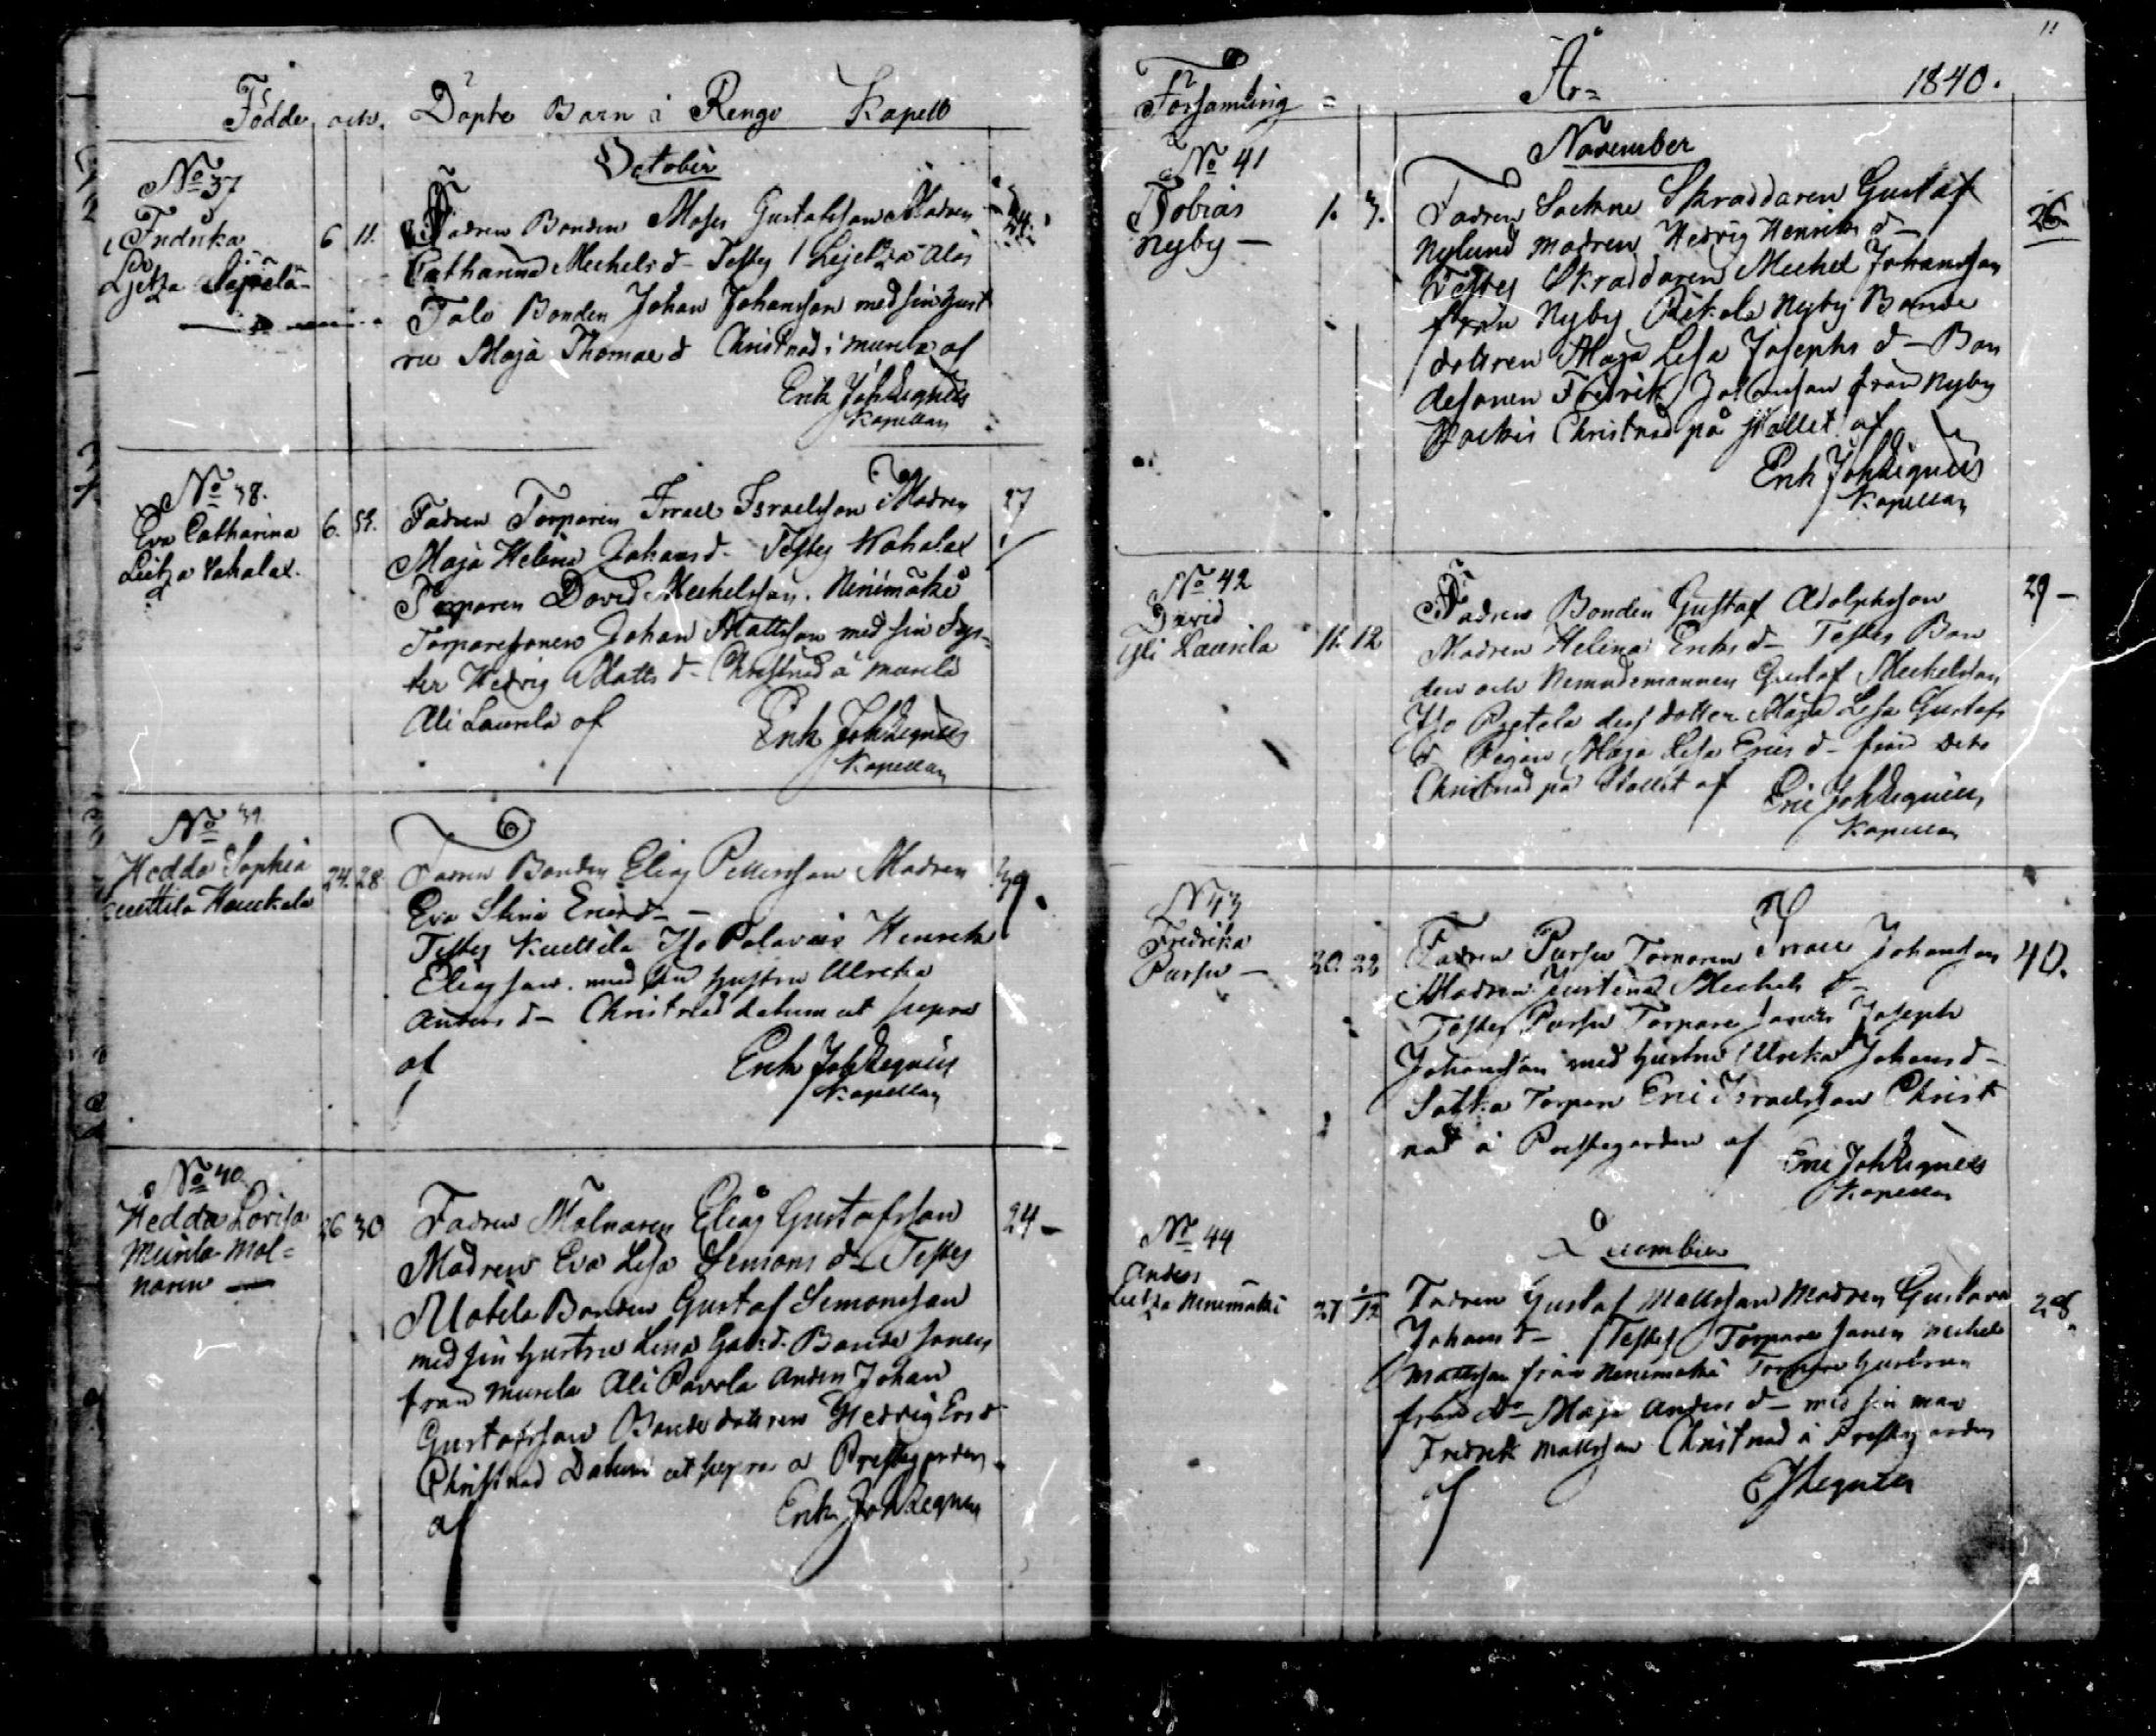 Födde och Döpte Barn i Rengo Kapell
October
No 37
Fredrika
Lietza
6 11.
Fadren Bonden Moses Gustafsson Modren
24.
Catharina Michels d- Testes
Talo Bonden Johan Johansson med sin hust
ru Maja Thomae d Christnad i af
Erik Joh Regnéus
Kapellan
No 38.
Eva Catharina
Lietza Kahalax.
6.
Fadren Torparen Israel Israelsson Modren
27
Maja Helena Johans d- Testes Kahalax
Torparen David Michelsson. Ninimäki
Torparesonen Johan Mattsson med sin Sys-
ter Hedvig Matts d- Christnad å
Ali Laurila af
Erik Joh Regnéus
Kapellan
No 39.
Hedda Sophia
Kuttila Haukala
24. 28
Fadren Bonden Elias Pettersson Modren
39.
Eva Stina Erics d-
Testes Kuttila Iso Henrik
Eliasson med sin hustru Ulrika
Anders d- Christnad datum ut supra
af
Erik Joh Regnéus
Kapellan
No 40
Hedda Lovisa
Murila Möl-
naren
26 30
Fadren Mölnaren Elias Gustafsson
24-
Modren Eva Lisa Simons d- Testes
Bonden Gustaf Simonsson
med sin hustru Lena Bonde sonen
från Murila Ali Pavola Anders Johan
Gustafsson Bonde dottren Hedvig
Christnad Datum ut supra a Prestgården
af
Erik Joh Regnéus
11
Församling
År
1840.
November
No 41
Tobias
Nyby-
1. 3.
Fadren Sockne Skraddaren Gustaf
26
Nylund modren Hedvig Henriks d-
Testes Skraddaren Michel Johansson
från Nyby Nyby Bonde
dottren Maja Lisa Josephs d- Bon
desonen Fredrik Johansson från Nyby
Christnad på Stället af
Erik Joh Regnéus
Kapellan
No 42
David
Yli Laurila
11. 12
Fadren Bonden Gustaf Adolphsson
29-
Modren Helena Eriks d- Testes Bon
den och Nemndemannen Gustaf Michelsson
Iso dess dotter Maja Lisa Gustafs
d- Pigan Maja Lisa Erics d- från
Christnad på Stället af
Eric Joh Regnéus
Kapellan
No 43
Fredrika
Pursu-
20. 22
Fadren Pursu Torparen Israel Johansson
40.
Modren Justina Michels d-
Testes Pursu Torpare sonen Joseph
Johansson med hustru Ulrika Johans d-
Torpare Eric Israelsson Christ
nad å Prestegarden af
Eric Joh Regnéus
Kapellan
December
No 44
Anders
Lietza Ninimäki
27
Fadren Gustaf Mattsson Modren Gustava
28.
Johans d- Testes Torpare sonen Michel
Mattsson från Ninimäki Torpare hustrun
från do- Maja Anders d- med sin man
Fredrik Mattsson Christnad å Prestgården
af
EJRegnéus